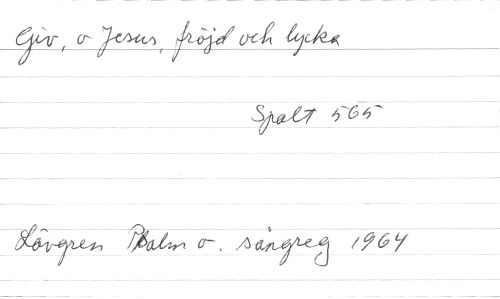 Giv, o Jesus, fröjd och lycka
Spalt 565
Lövgren Psalm o. sångreg 1964